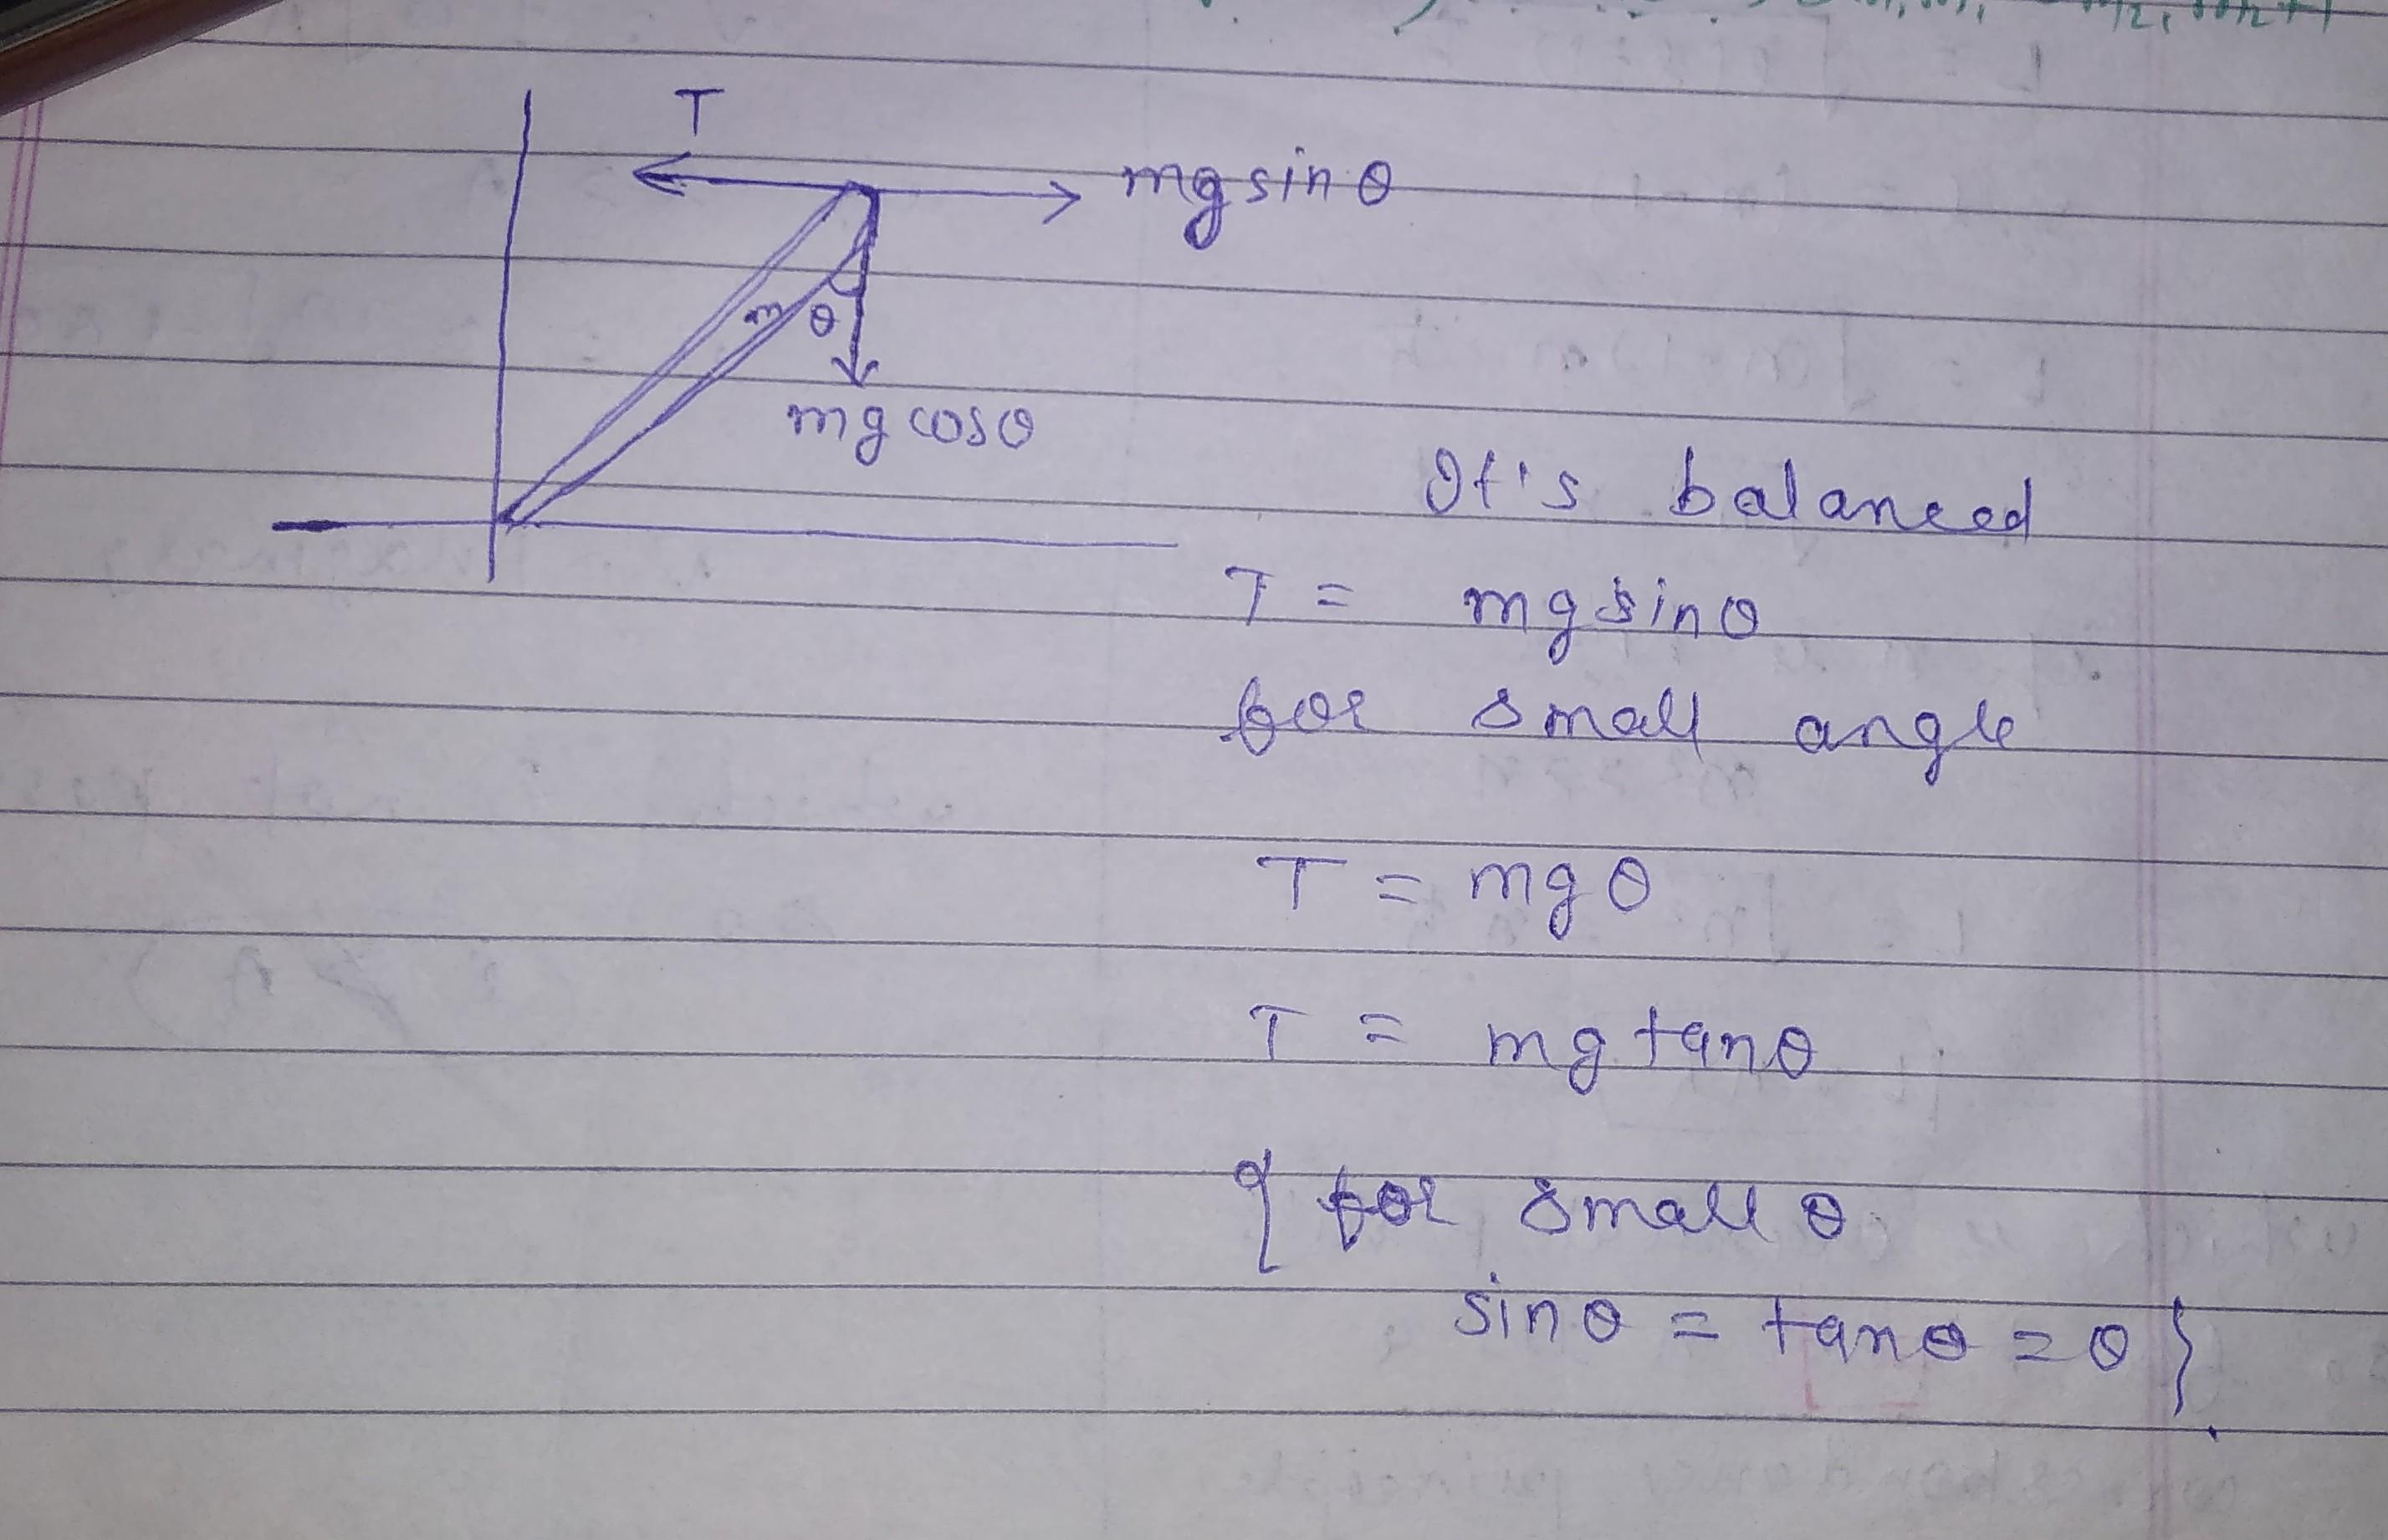 T
mg sin θ
m θ
mg cos θ
It's balanced
T = mg sin θ
for small angle
T = mg θ
T = mg tan θ
{ for small θ
sin θ = tan θ = θ }